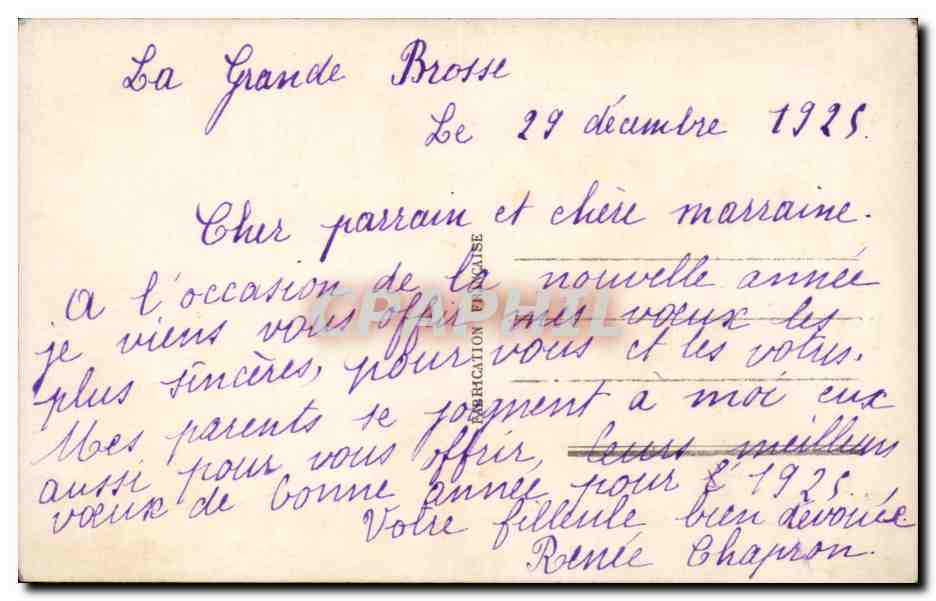 La Grande Brosse
Le 29 décembre 1925.
Cher parrain et chère marraine.
A l'occasion de la nouvelle année
je viens vous offrir mes vœux les
plus sincères, pour vous et les votres.
Mes parents se joignent à moi eux
aussi pour vous offrir, leurs meilleurs
vœux de bonne année pour l'1925.
Votre filleule bien dévouée
Renée Chapron.
FABRICATION FRANÇAISE
CPAPHIL